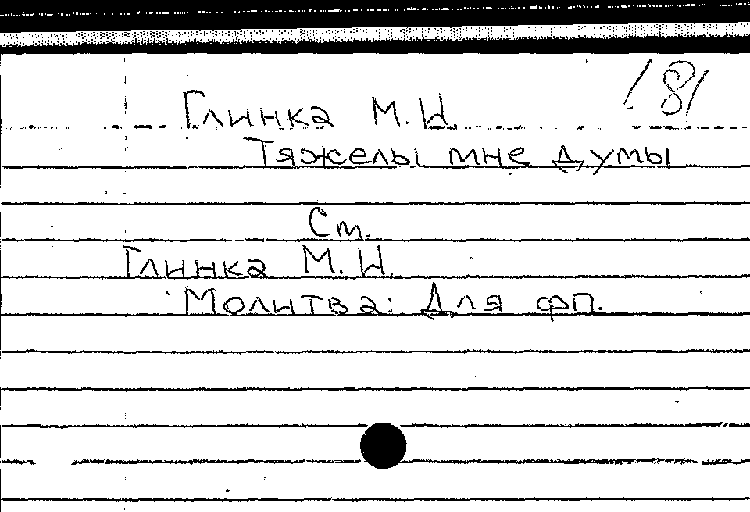 181
Глинка М.И.
Тяжелы мне думы
См.
Глинка М.И.
Молитва: Для фп.